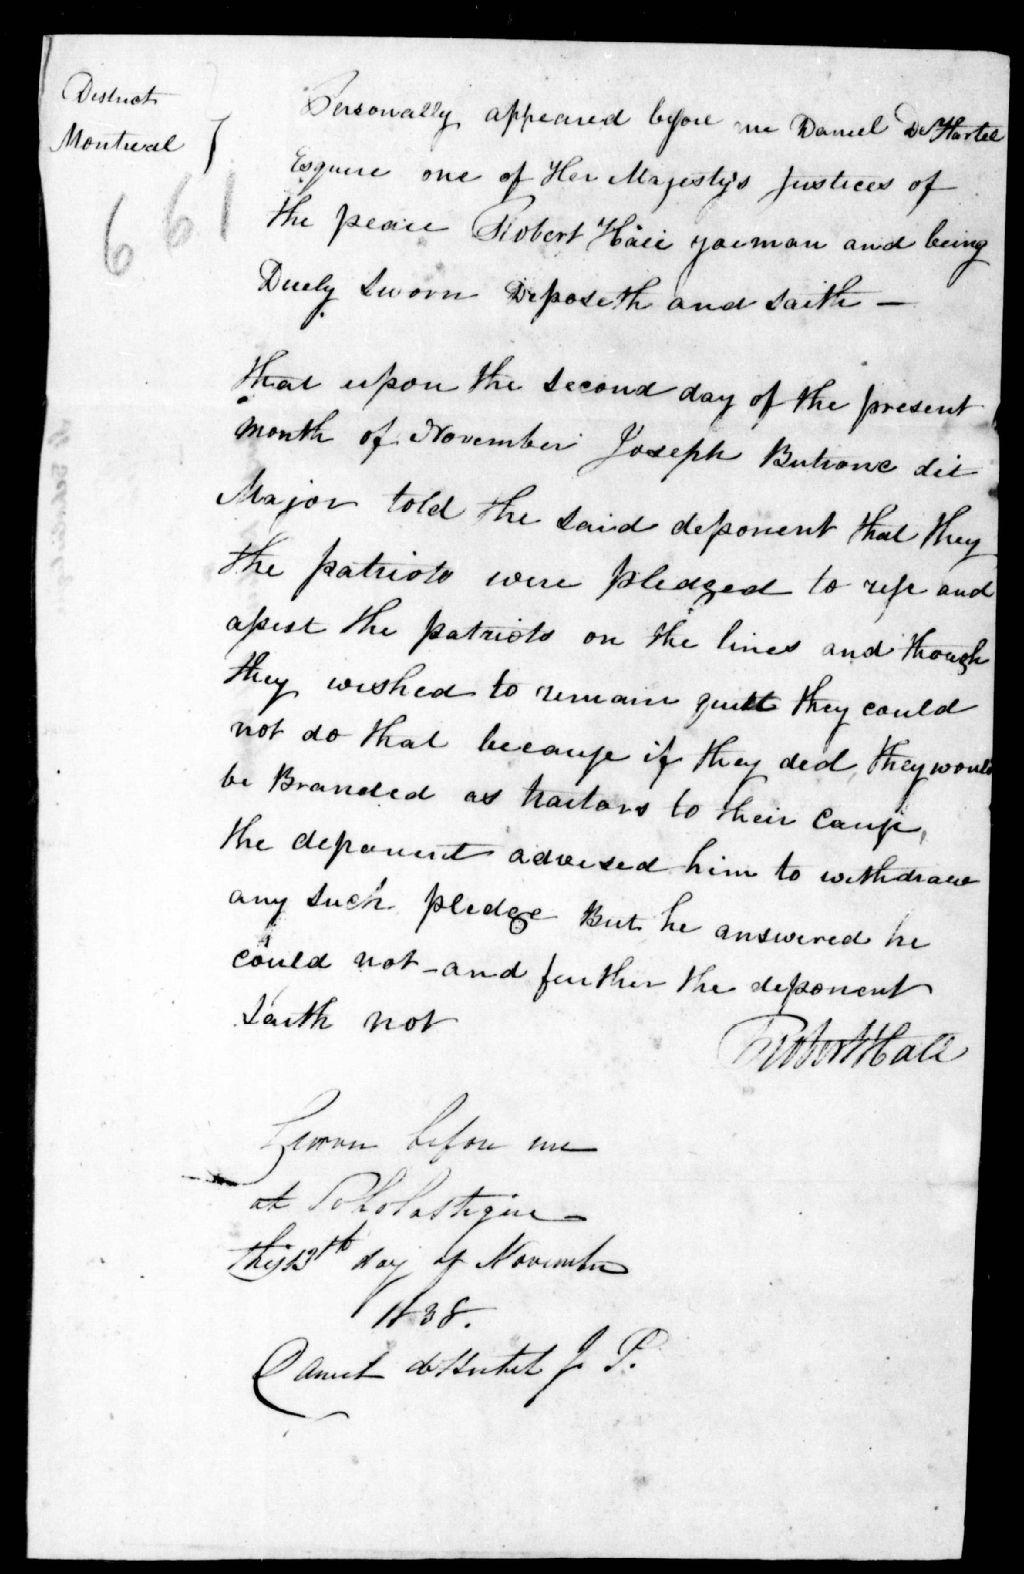 District
Montreal }
661
Personally appeared before me Daniel De Hartel
Esquire one of Her Majesty's Justices of
the peace Robert Hall yoeman and being
Duely Sworn Deposeth and Saith —
that upon the Second day of the present
month of November Joseph dit
Major told the said deponent that they
the patriots were pledged to rise and
assist the patriots on the lines and though
they wished to remain quiet they could
not do that because if they ded they would
be Branded as traitors to their cause,
the deponent advised him to withdraw
any such pledge But he answered he
could not - and further the deponent
Saith not
Robert Hall
Sworn before me
at St Scholastique
this 13th day of November
1838.
Daniel de Hertel J. P.